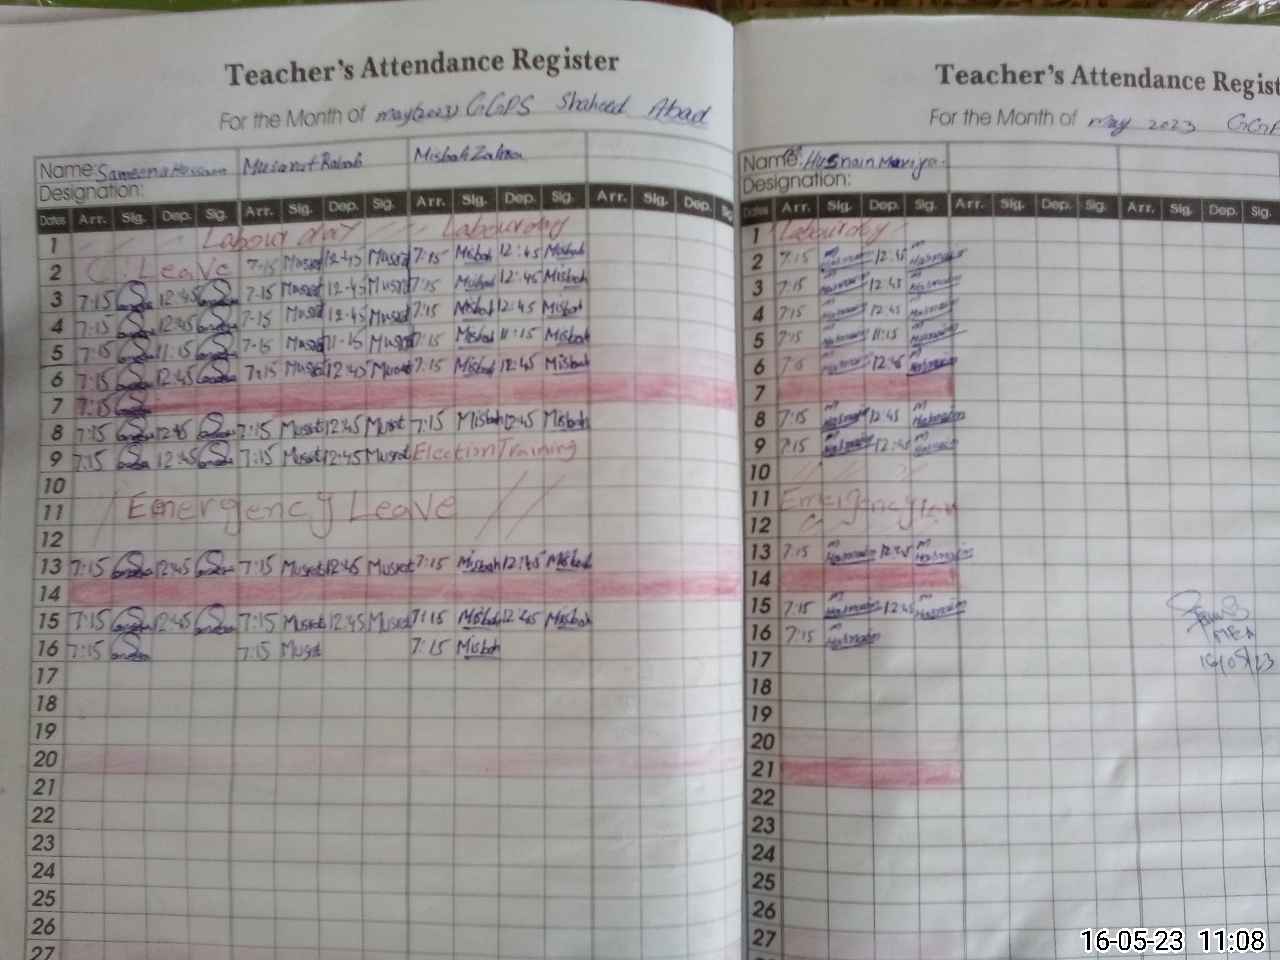 Teacher's Attendance Register
For the Month of may(2023) GGPS Shaheed Abad
Name: Sameena Hussain Musarat Rabab Misbah Zahra
Designation:
Dates Arr. Sig. Dep. Sig. Arr. Sig. Dep. Sig. Arr. Sig. Dep. Sig. Arr. Sig. Dep. Sig
1 Labour day Labour day
2 C. Leave 7:15 Musrat 12:45 Musrat 7:15 Misbah 12:45 Misbah
3 7:15 12:45 7:15 Musrat 12:45 Musrat 7:15 Misbah 12:45 Misbah
4 7:15 12:45 7:15 Musrat 12:45 Musrat 7:15 Misbah 12:45 Misbah
5 7:15 11:15 7:15 Musrat 11:15 Musrat 7:15 Misbah 11:15 Misbah
6 7:15 12:45 7:15 Musrat 12:45 Musrat 7:15 Misbah 12:45 Misbah
7 7:15
8 7:15 12:45 7:15 Musrat 12:45 Musrat 7:15 Misbah 12:45 Misbah
9 7:15 12:45 7:15 Musrat 12:45 Musrat Election Training
10
11 Emergency Leave
12
13 7:15 12:45 7:15 Musrat 12:45 Musrat 7:15 Misbah 12:45 Misbah
14
15 7:15 12:45 7:15 Musrat 12:45 Musrat 7:15 Misbah 12:45 Misbah
16 7:15 7:15 Musrat 7:15 Misbah
17
18
19
20
21
22
23
24
25
26
27
Teacher's Attendance Regist
For the Month of May 2023 GGP
Name: Husnain Mariya
Designation:
Dates Arr. Sig. Dep. Sig. Arr. Sig. Dep. Sig. Arr. Sig. Dep. Sig.
1 Labour day
2 7:15 Hasnain 12:45 Hasnain
3 7:15 Hasnain 12:45 Hasnain
4 7:15 Hasnain 12:45 Hasnain
5 7:15 Hasnain 11:15 Hasnain
6 Hasnain 12:45 Hasnain
7
8 7:15 Hasnain 12:45 Hasnain
9 7:15 Hasnain 12:45 Hasnain
10
11 Emergency
12
13 7:15 Hasnain 12:45 Hasnain
14
15 7:15 Hasnain 12:45 Hasnain
16 7:15 Hasnain
MEA
17 16/05/23
18
19
20
21
22
23
24
25
26
27
16-05-23 11:08